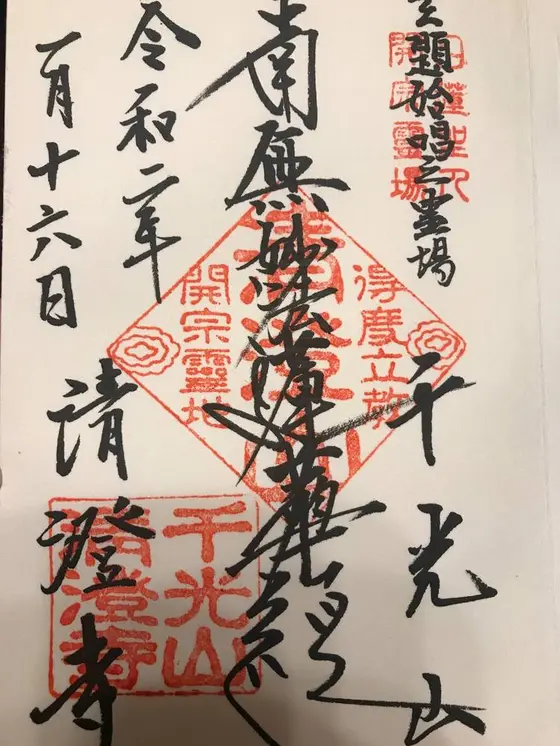 題始唱之霊場
千光山
南無妙法蓮華経
令和二年
一月十六日
清澄寺
日蓮聖人
開宗靈場
得度立教
清澄山
開宗靈地
千光山
清澄寺